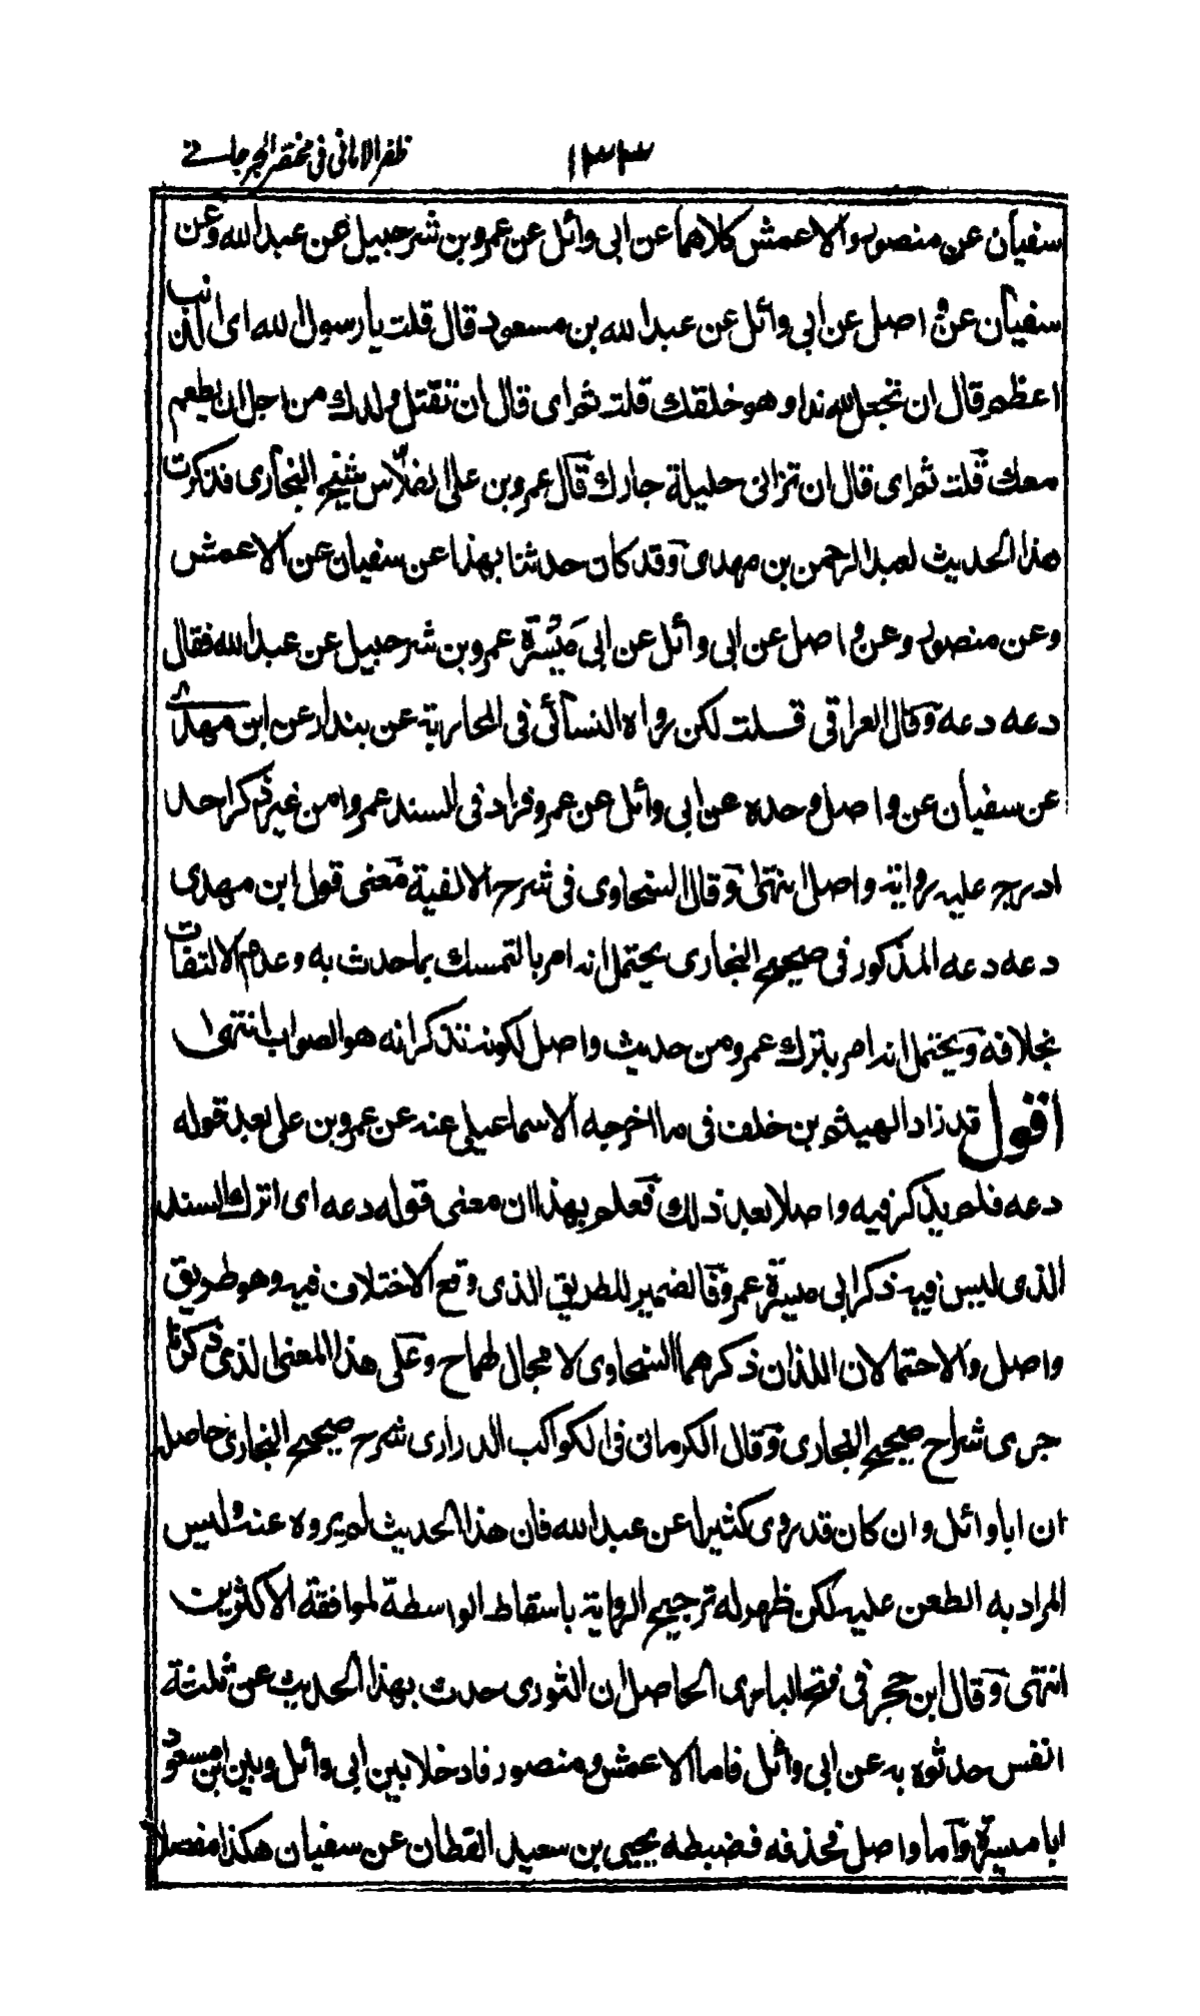 ظفر الامانی فی مختصر الجرجانے
۱۳۳
سفیان عن منصور والاعمش کلاهما عن ابی وائل عن عمرو بن شرحبیل عن عبد الله وعن
سفیان عن واصل عن ابی وائل عن عبد الله بن مسعود قال قلت یا رسول الله ای الذنب
اعظم قال ان تجعل لله ندا وهو خلقک قلت ثم ای قال ان تقتل ولدک من اجل ان یطعم
معک قلت ثم ای قال ان تزانی حلیلة جارک قال عمرو بن علی الفلّاس شیخ البخاری فذکرت
هذا الحدیث لعبد الرحمن بن مهدی وقد کان حدثنا بهذا عن سفیان عن الاعمش
وعن منصور وعن واصل عن ابی وائل عن ابی مَیْسَرة عمرو بن شرحبیل عن عبد الله فقال
دعه دعه وقال العراقی قلت لکن رواه النسائی فی المحاربة عن بندار عن ابن مهدی
عن سفیان عن واصل وحده عن ابی وائل عن عمرو فزاد فی السند عمروا من غیر ذکر احد
ادرج علیه روایة واصل انتهی وقال السخاوی فی شرح الالفیة معنی قول ابن مهدی
دعه دعه المذکور فی صحیح البخاری یحتمل انه امر بالتمسک بما حدث به وعدم الالتفات
بخلافه ویحتمل انه امر بترک عمرو من حدیث واصل لکونه تذکر انه هو الصواب انتهی
اقول قد زاد الهیثم بن خلف فی ما اخرجه الاسماعیلی عنه عن عمرو بن علی بعد قوله
دعه فلم یذکر فیه واصلا بعد ذلک فعلم بهذا ان معنی قوله دعه ای اترک السند
الذی لیس فیه ذکر ابی میسرة عمرو فالضمیر للطریق الذی وقع الاختلاف فیه وهو طریق
واصل والاحتمالان اللذان ذکرهما السخاوی لا مجال لهما ح وعلی هذا المعنی الذی ذکرنا
جری شراح صحیح البخاری وقال الکرمانی فی الکواکب الدراری شرح صحیح البخاری حاصله
ان ابا وائل وان کان قد روی کثیرا عن عبد الله فان هذا الحدیث لم یروه عنه ولیس
المراد به الطعن علیه لکن ظهر له ترجیح الروایة باسقاط الواسطة لموافقة الاکثرین
انتهی وقال ابن حجر فی فتح الباری الحاصل ان الثوری حدث بهذا الحدیث عن ثلثة
انفس حدثوه به عن ابی وائل فاما الاعمش ومنصور فادخلا بین ابی وائل وبین ابن مسعود
ابا میسرة واما واصل فحذفه فضبطه یحیی بن سعید القطان عن سفیان هکذا مفصلا